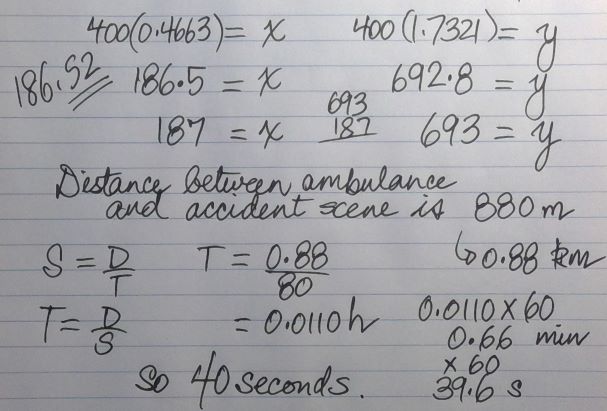 400(0.4663)= x 400(1.7321)= y
186.52 186.5 = x 692.8 = y
693
187 = x 187 693 = y
Distance between ambulance
and accident scene is 880m
S = D/T T = 0.88/80 ↳0.88 km
T = D/S = 0.0110h 0.0110×60
0.66 min
× 60
So 40 seconds. 39.6 s